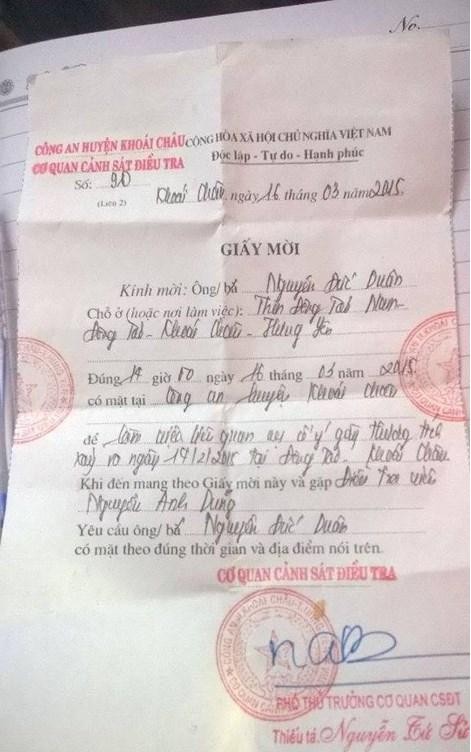 No.
CÔNG AN HUYỆN KHOÁI CHÂU CỘNG HÒA XÃ HỘI CHỦ NGHĨA VIỆT NAM
CƠ QUAN CẢNH SÁT ĐIỀU TRA Độc lập - Tự do - Hạnh phúc
Số: 90
(Liên 2)
Khoái Châu, ngày 16 tháng 03 năm 2015
GIẤY MỜI
Kính mời: Ông/ bà Nguyễn Đức Duân
Chỗ ở (hoặc nơi làm việc): Thôn Đông Tảo Nam-
Đông Tảo - Khoái Châu - Hưng Yên
Đúng 14 giờ 00 ngày 16 tháng 03 năm 2015
có mặt tại Công an huyện Khoái Châu
để làm việc liên quan vụ cố ý gây thương tích
xảy ra ngày 17/2/2015 tại Đông Tảo, Khoái Châu
Khi đến mang theo Giấy mời này và gặp Điều tra viên
Nguyễn Anh Dũng
Yêu cầu ông/ bà Nguyễn Đức Duân
có mặt theo đúng thời gian và địa điểm nói trên.
CƠ QUAN CẢNH SÁT ĐIỀU TRA
PHÓ THỦ TRƯỞNG CƠ QUAN CSĐT
Thiếu tá. Nguyễn